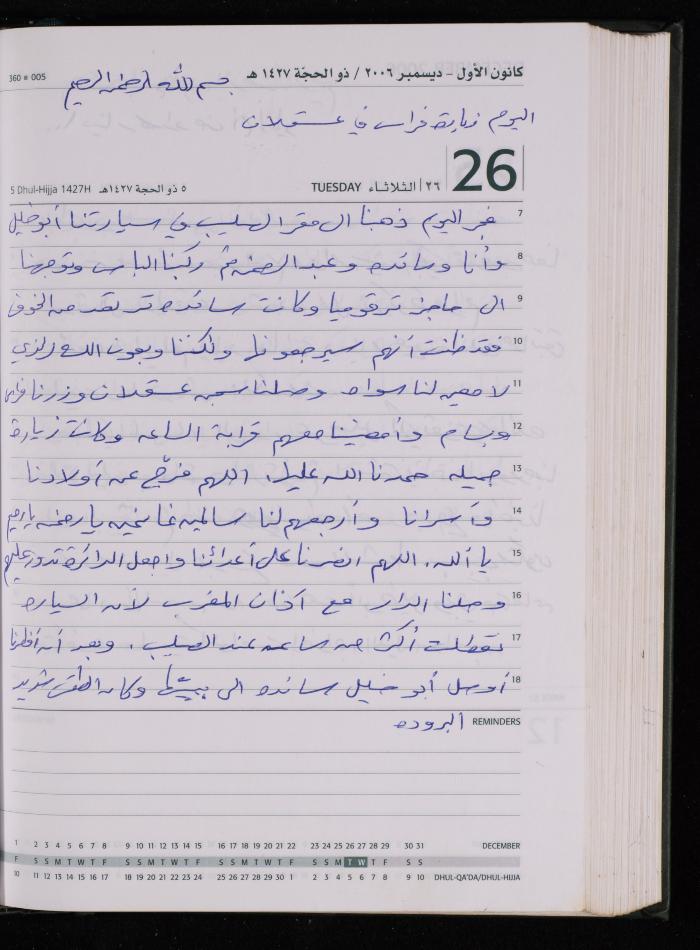 360 ■ 005
كانون الأول - ديسمبر ٢٠٠٦ / ذو الحجّة ١٤٢٧ هـ
بسم الله الرحمن الرحيم
اليوم زيارة فراس في عسقلان
5 Dhul-Hijja 1427H ٥ ذو الحجة ١٤٢٧هـ TUESDAY الثلاثاء ٢٦ 26
7 فجر اليوم ذهبنا الى مقر الصليب في سيارتنا أبو خليل
8 وأنا وسائده وعبد الرحمن ثم ركبنا الباص وتوجهنا
9 الى حاجز ترقوميا وكانت سائده ترتعد من الخوف
10 فقد ظنت أنهم سيرجعونها ولكننا وبعون الله الذي
11 لا معين لنا سواه وصلنا سجن عسقلان وزرنا فراس
12 وبسام وأمضينا معهم قرابة الساعه وكانت زيارة
13 جميله حمدنا الله عليها. اللهم فرّج عن أولادنا
14 وأسرانا وأرجعهم لنا سالمين غانمين يا رحمن يا رحيم
15 يا ألله. اللهم انصرنا على أعدائنا واجعل الدائرة تدور عليهم
16 وصلنا الدار مع آذان المغرب لأن السياره
17 تعطلت أكثر من ساعه عند الصليب. وبعد أن أفطرنا
18 أوصل أبو خليل سائده الى بيتها وكان الطقس شديد
REMINDERS البروده
1 2 3 4 5 6 7 8 9 10 11 12 13 14 15 16 17 18 19 20 21 22 23 24 25 26 27 28 29 30 31 DECEMBER
F S S M T W T F S S M T W T F S S M T W T F S S M T W T F S S
10 11 12 13 14 15 16 17 18 19 20 21 22 23 24 25 26 27 28 29 30 1 2 3 4 5 6 7 8 9 10 DHUL-QA'DA/DHUL-HIJJA